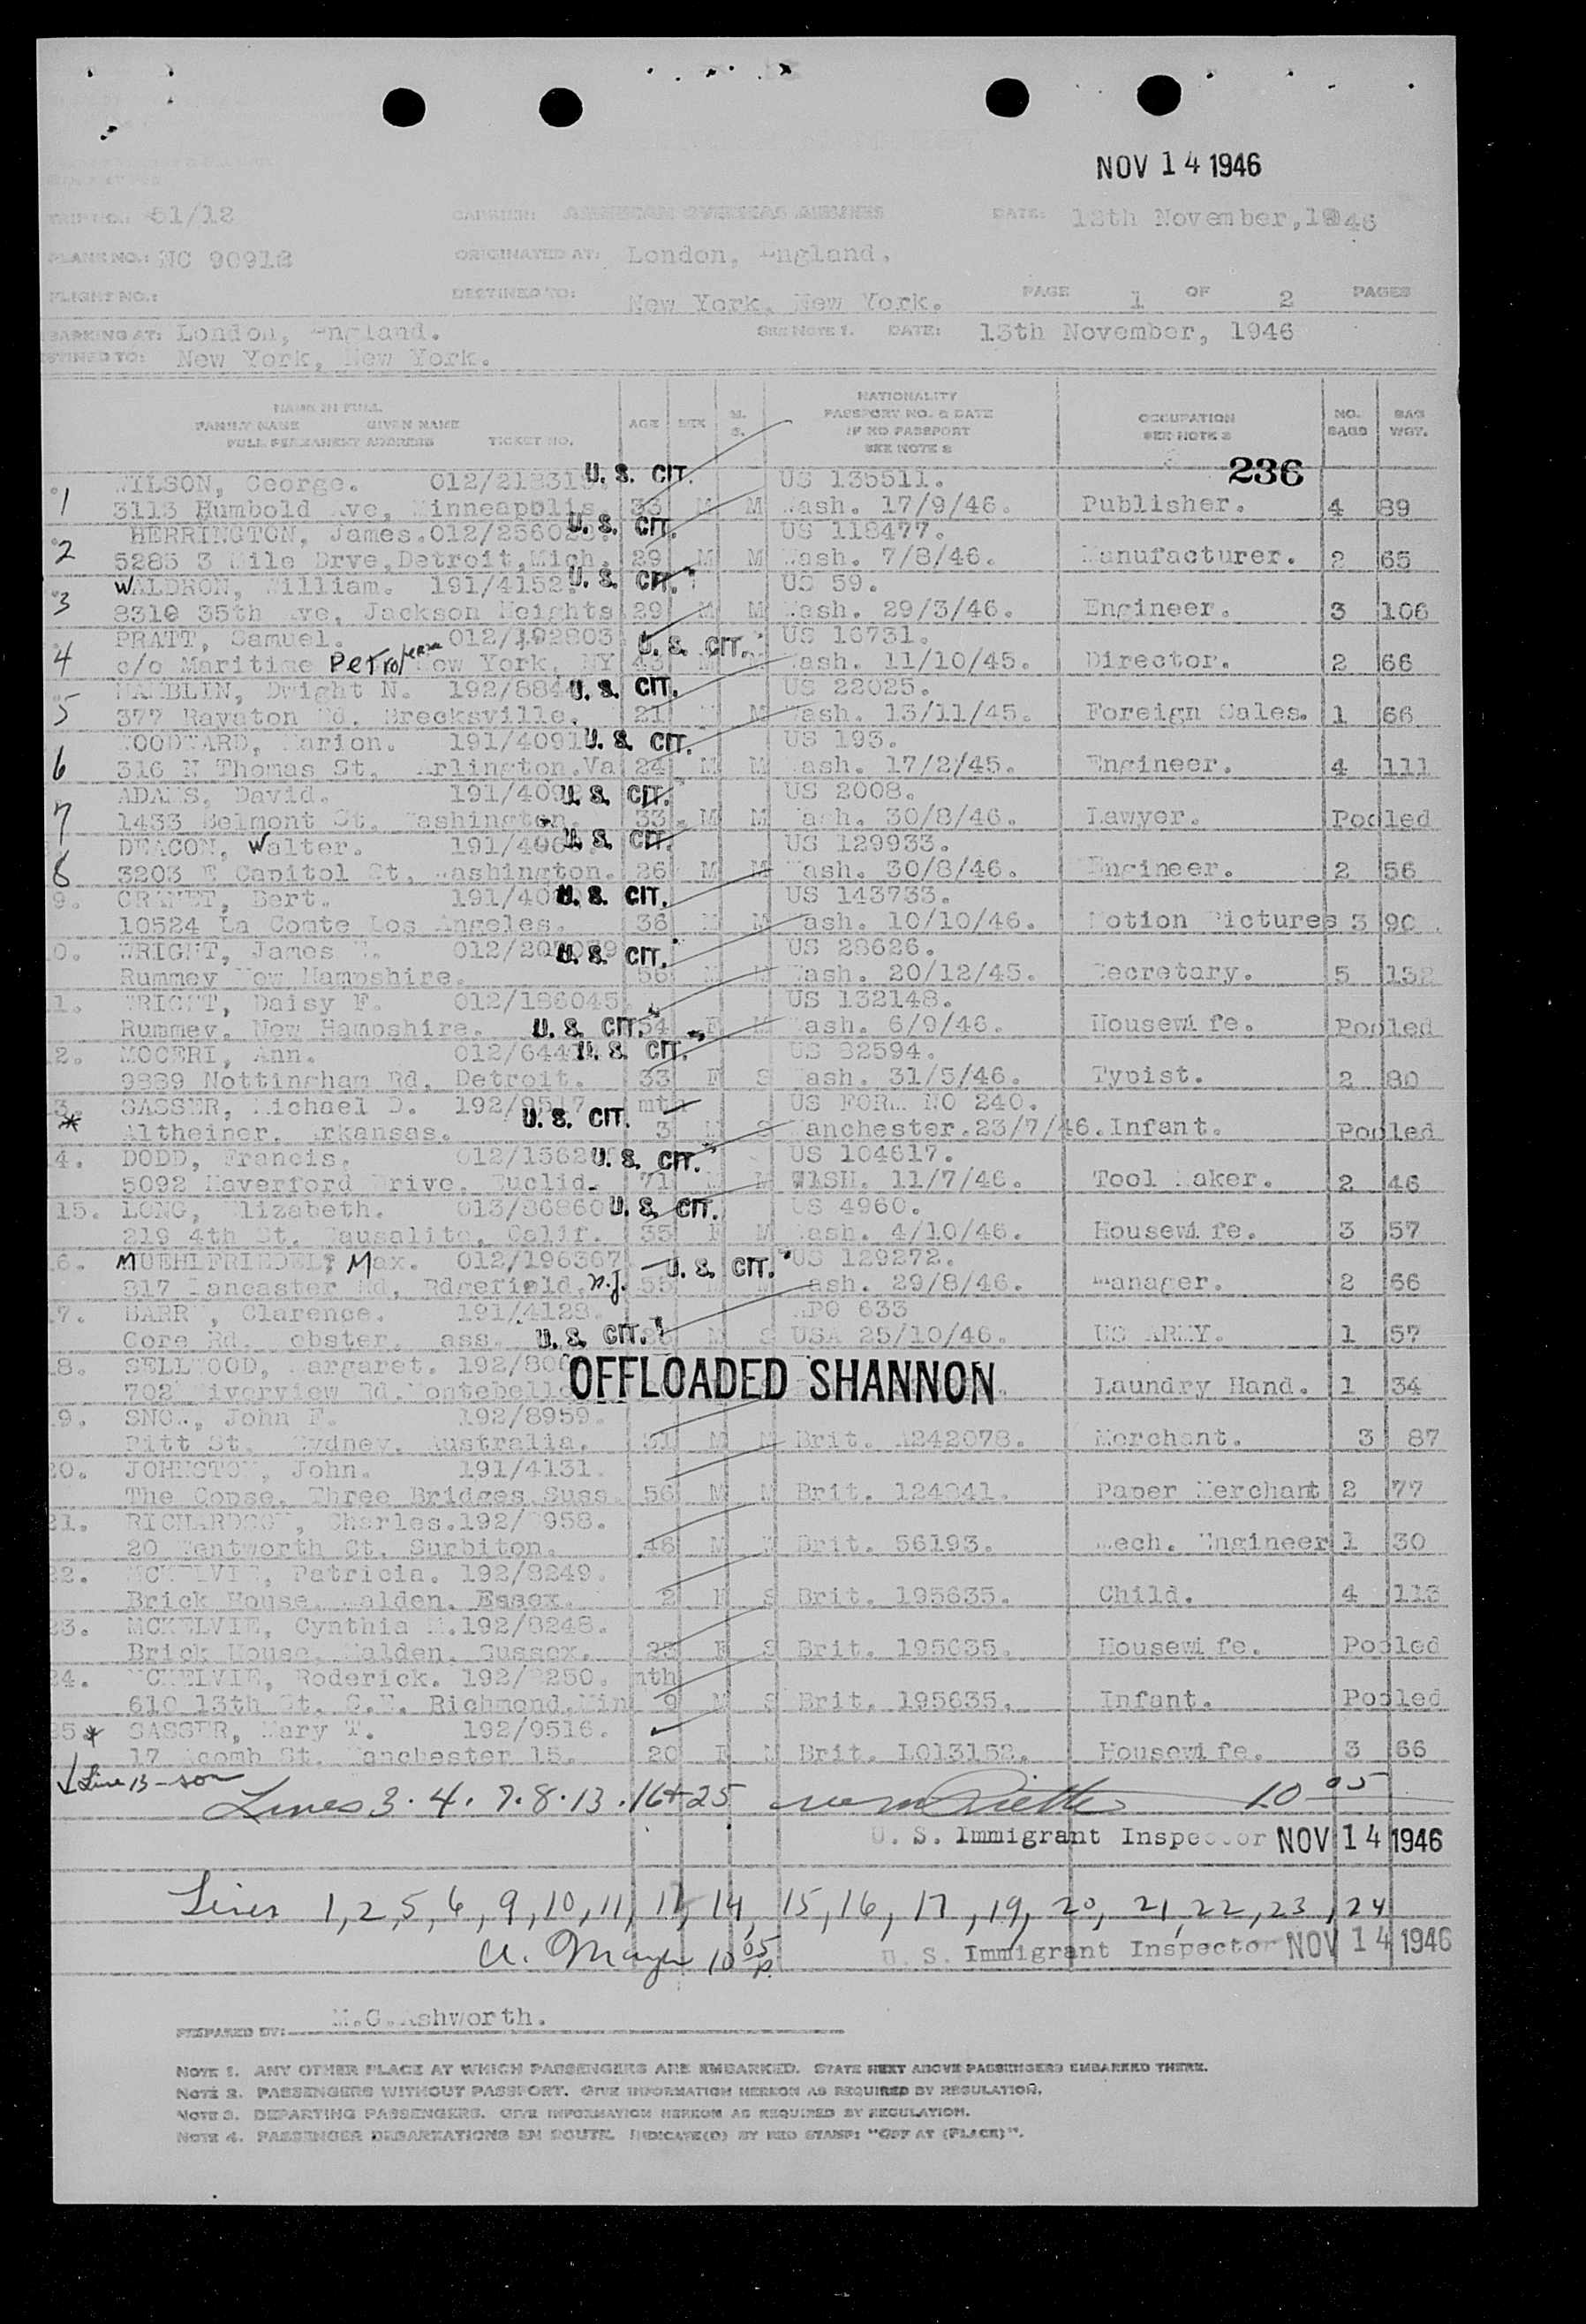 NOV 14 1946
TRIP NO.: 51/12 CARRIER: AMERICAN OVERSEAS AIRLINES DATE: 13th November, 1946
PLANE NO.: NC 90912 ORIGINATED AT: London, England.
FLIGHT NO.: DESTINED TO: New York, New York. PAGE 1 OF 2 PAGES
BARKING AT: London, England. SEE NOTE 1. DATE: 13th November, 1946
STINED TO: New York, New York.
NAME IN FULL
FAMILY NAME GIVEN NAME
FULL PERMANENT ADDRESS TICKET NO. AGE SEX M. S. NATIONALITY PASSPORT NO. & DATE IF NO PASSPORT SEE NOTE 2 OCCUPATION SEE NOTE 3 NO. BAGS BAG WGT.
236
1 WILSON, George. U. S. CIT. US 135511.
3113 Humbold Ave, Minneapolis. 33 M M Wash. 17/9/46. Publisher. 4 89
2 HERRINGTON, James. U. S. CIT. US 118477.
5285 3 Mile Drve, Detroit, Mich. 29 M M Wash. 7/8/46. Manufacturer. 2 65
3 WALDRON, William. 191/4152 U. S. CIT. US 59.
8310 35th Ave, Jackson Heights 29 M M Wash. 29/3/46. Engineer. 3 106
4 PRATT, Samuel. 012/192803 U. S. CIT. US 16731.
c/o Maritime Petro New York, NY 43 M Wash. 11/10/45. Director. 2 66
5 HAMBLIN, Dwight N. U. S. CIT. US 22025.
377 Rayaton Rd. Brecksville. 21 M Wash. 13/11/45. Foreign Sales. 1 66
6 WOODWARD, Marion. U. S. CIT. US 193.
316 N Thomas St, Arlington.Va 24 M M Wash. 17/2/45. Engineer. 4 111
7 ADAMS, David. U. S. CIT. US 2008.
1433 Belmont St. Washington. 33 M M Wash. 30/8/46. Lawyer. Pooled
8 DEACON, Walter. U. S. CIT. US 129933.
3203 E Capitol St, Washington. 26 M M Wash. 30/8/46. Engineer. 2 56
9. Bert. U. S. CIT. US 143733.
10524 La Comte Los Angeles. 36 M M Wash. 10/10/46. Motion Pictures 3 90
0. WRIGHT, James U. S. CIT. US 28626.
Rummey New Hampshire. 56 M M Wash. 20/12/45. Secretary. 5 132
1. WRIGHT, Daisy F. 012/186045 US 132148.
Rummey, New Hampshire. U. S. CIT. 54 F M Wash. 6/9/46. Housewife. Pooled
2. MOCERI, Ann. U. S. CIT. US 82594.
9889 Nottingham Rd, Detroit. 33 F S Wash. 31/5/46. Typist. 2 80
3. SASSER, Michael D. 192/9517 mth US FORM NO 240.
* Altheimer, Arkansas. U. S. CIT. 3 M S Manchester.23/7/46. Infant. Pooled
4. DODD, Francis. U. S. CIT. US 104617.
5092 Haverford Drive. Euclid. 71 M M WASH. 11/7/46. Tool Maker. 2 46
15. LONG, Elizabeth. 013/86860 U. S. CIT. US 4960.
219 4th St. Sausalito, Calif. 35 F M Wash. 4/10/46. Housewife. 3 57
6. MUEHLFRIEDEL, Max. 012/196367 U. S. CIT. US 129272.
317 Lancaster Rd, Rdgefield, N.J. 55 M M Wash. 29/8/46. Manager. 2 66
7. BARR, Clarence. 191/4128. APO 633
Core Rd. Webster, Mass. U. S. CIT. M S USA 25/10/46. US ARMY. 1 57
8. SELLWOOD, Margaret.
702 Riverview Rd. Montebello OFFLOADED SHANNON Laundry Hand. 1 34
9. SNOW, John F. 192/8959.
Pitt St. Sydney, Australia. 51 M M Brit. A242078. Merchant. 3 87
20. JOHNSTON, John. 191/4131.
The Copse, Three Bridges Suss. 56 M M Brit. 124841. Paper Merchant 2 77
21. RICHARDSON, Charles.
20 Wentworth Ct, Surbiton. 46 M M Brit. 56193. Mech. Engineer 1 30
22. MCKELVIE, Patricia. 192/8249.
Brick House, Malden, Essex. 2 F S Brit. 195635. Child. 4 113
23. MCKELVIE, Cynthia M. 192/8248.
Brick House, Malden, Sussex. F S Brit. 195635. Housewife. Pooled
24. MCKELVIE, Roderick. 192/8250. mth
610 13th St. S.E. Richmond, Min 9 M S Brit. 195635. Infant. Pooled
25 * SASSER, Mary T. 192/9516.
17 Acomb St. Manchester 15. 20 F M Brit. L013152. Housewife. 3 66
Line 13 - son
Lines 3. 4. 7. 8. 13. 16 + 25 10 05
U. S. Immigrant Inspector NOV 14 1946
Lines 1, 2, 5, 6, 9, 10, 11, 12, 14, 15, 16, 17, 19, 20, 21, 22, 23, 24
10 05 p. U. S. Immigrant Inspector NOV 14 1946
PREPARED BY: M.G.Ashworth.
NOTE 1. ANY OTHER PLACE AT WHICH PASSENGERS ARE EMBARKED. STATE NEXT ABOVE PASSENGERS EMBARKED THERE.
NOTE 2. PASSENGERS WITHOUT PASSPORT. GIVE INFORMATION HEREON AS REQUIRED BY REGULATION.
NOTE 3. DEPARTING PASSENGERS. GIVE INFORMATION HEREON AS REQUIRED BY REGULATION.
NOTE 4. PASSENGER DEBARKATIONS EN ROUTE. INDICATE(D) BY RED STAMP: "OFF AT (PLACE)".